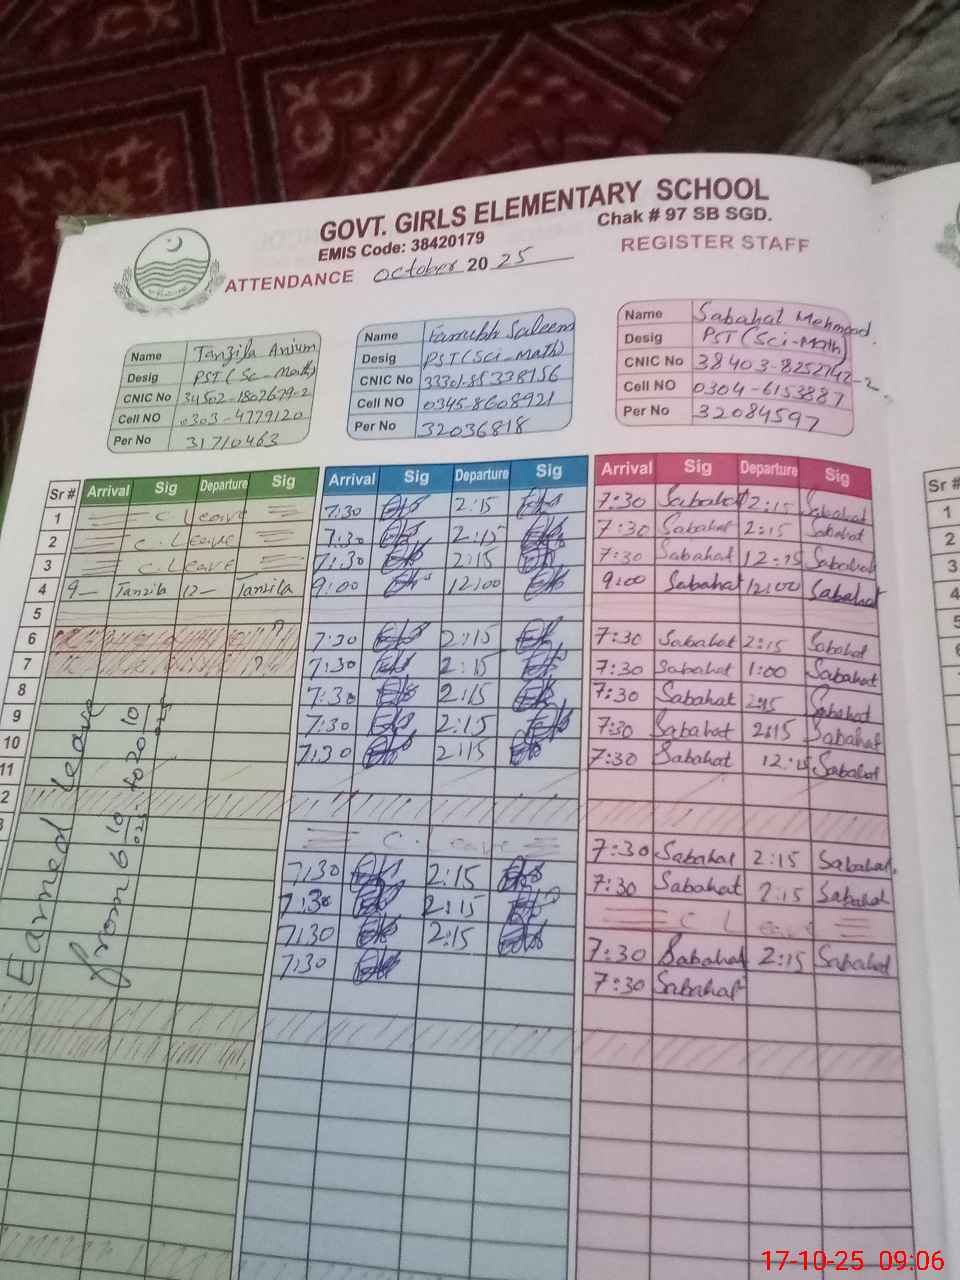 GOVT. GIRLS ELEMENTARY SCHOOL
Chak # 97 SB SGD.
EMIS Code: 38420179
ATTENDANCE October 20 25 REGISTER STAFF
Name Tanzila Anjum
Desig PST (Sc-Math)
CNIC No
Cell NO 0303-4779120
Per No 31710463
Name Saleem
Desig PST (Sci-Math)
CNIC No
Cell NO 0345-8608921
Per No 32036818
Name Sabahat Mehmood.
Desig PST (Sci-Math)
CNIC No 38403-8252742-2
Cell NO 0304-6153887
Per No 32084597
Sr # Arrival Sig Departure Sig Arrival Sig Departure Sig Arrival Sig Departure Sig Sr #
1 C. Leave 7:30 2:15 7:30 Sabahat 2:15 Sabahat 1
2 C. Leave 7:30 2:15 7:30 Sabahat 2:15 Sabahat 2
3 C. Leave 7:30 2:15 7:30 Sabahat 12:15 Sabahat 3
4 9— Tanzila 12— Tanzila 9:00 12:00 9:00 Sabahat 12:00 Sabahat 4
5 5
6 ? 7:30 2:15 7:30 Sabahat 2:15 Sabahat
7 ? 7:30 2:15 7:30 Sabahat 1:00 Sabahat
8 7:30 2:15 7:30 Sabahat 2:15 Sabahat
9 7:30 2:15 7:30 Sabahat 2:15 Sabahat
10 7:30 2:15 7:30 Sabahat 12:15 Sabahat
11
2
C. Leave 7:30 Sabahat 2:15 Sabahat.
7:30 2:15 7:30 Sabahat 2:15 Sabahat
7:30 2:15 C Leave
7:30 2:15 7:30 Sabahat 2:15 Sabahat
7:30 7:30 Sabahat
Earned leave
from 6 10 025 to 20 10 025
17-10-25 09:06